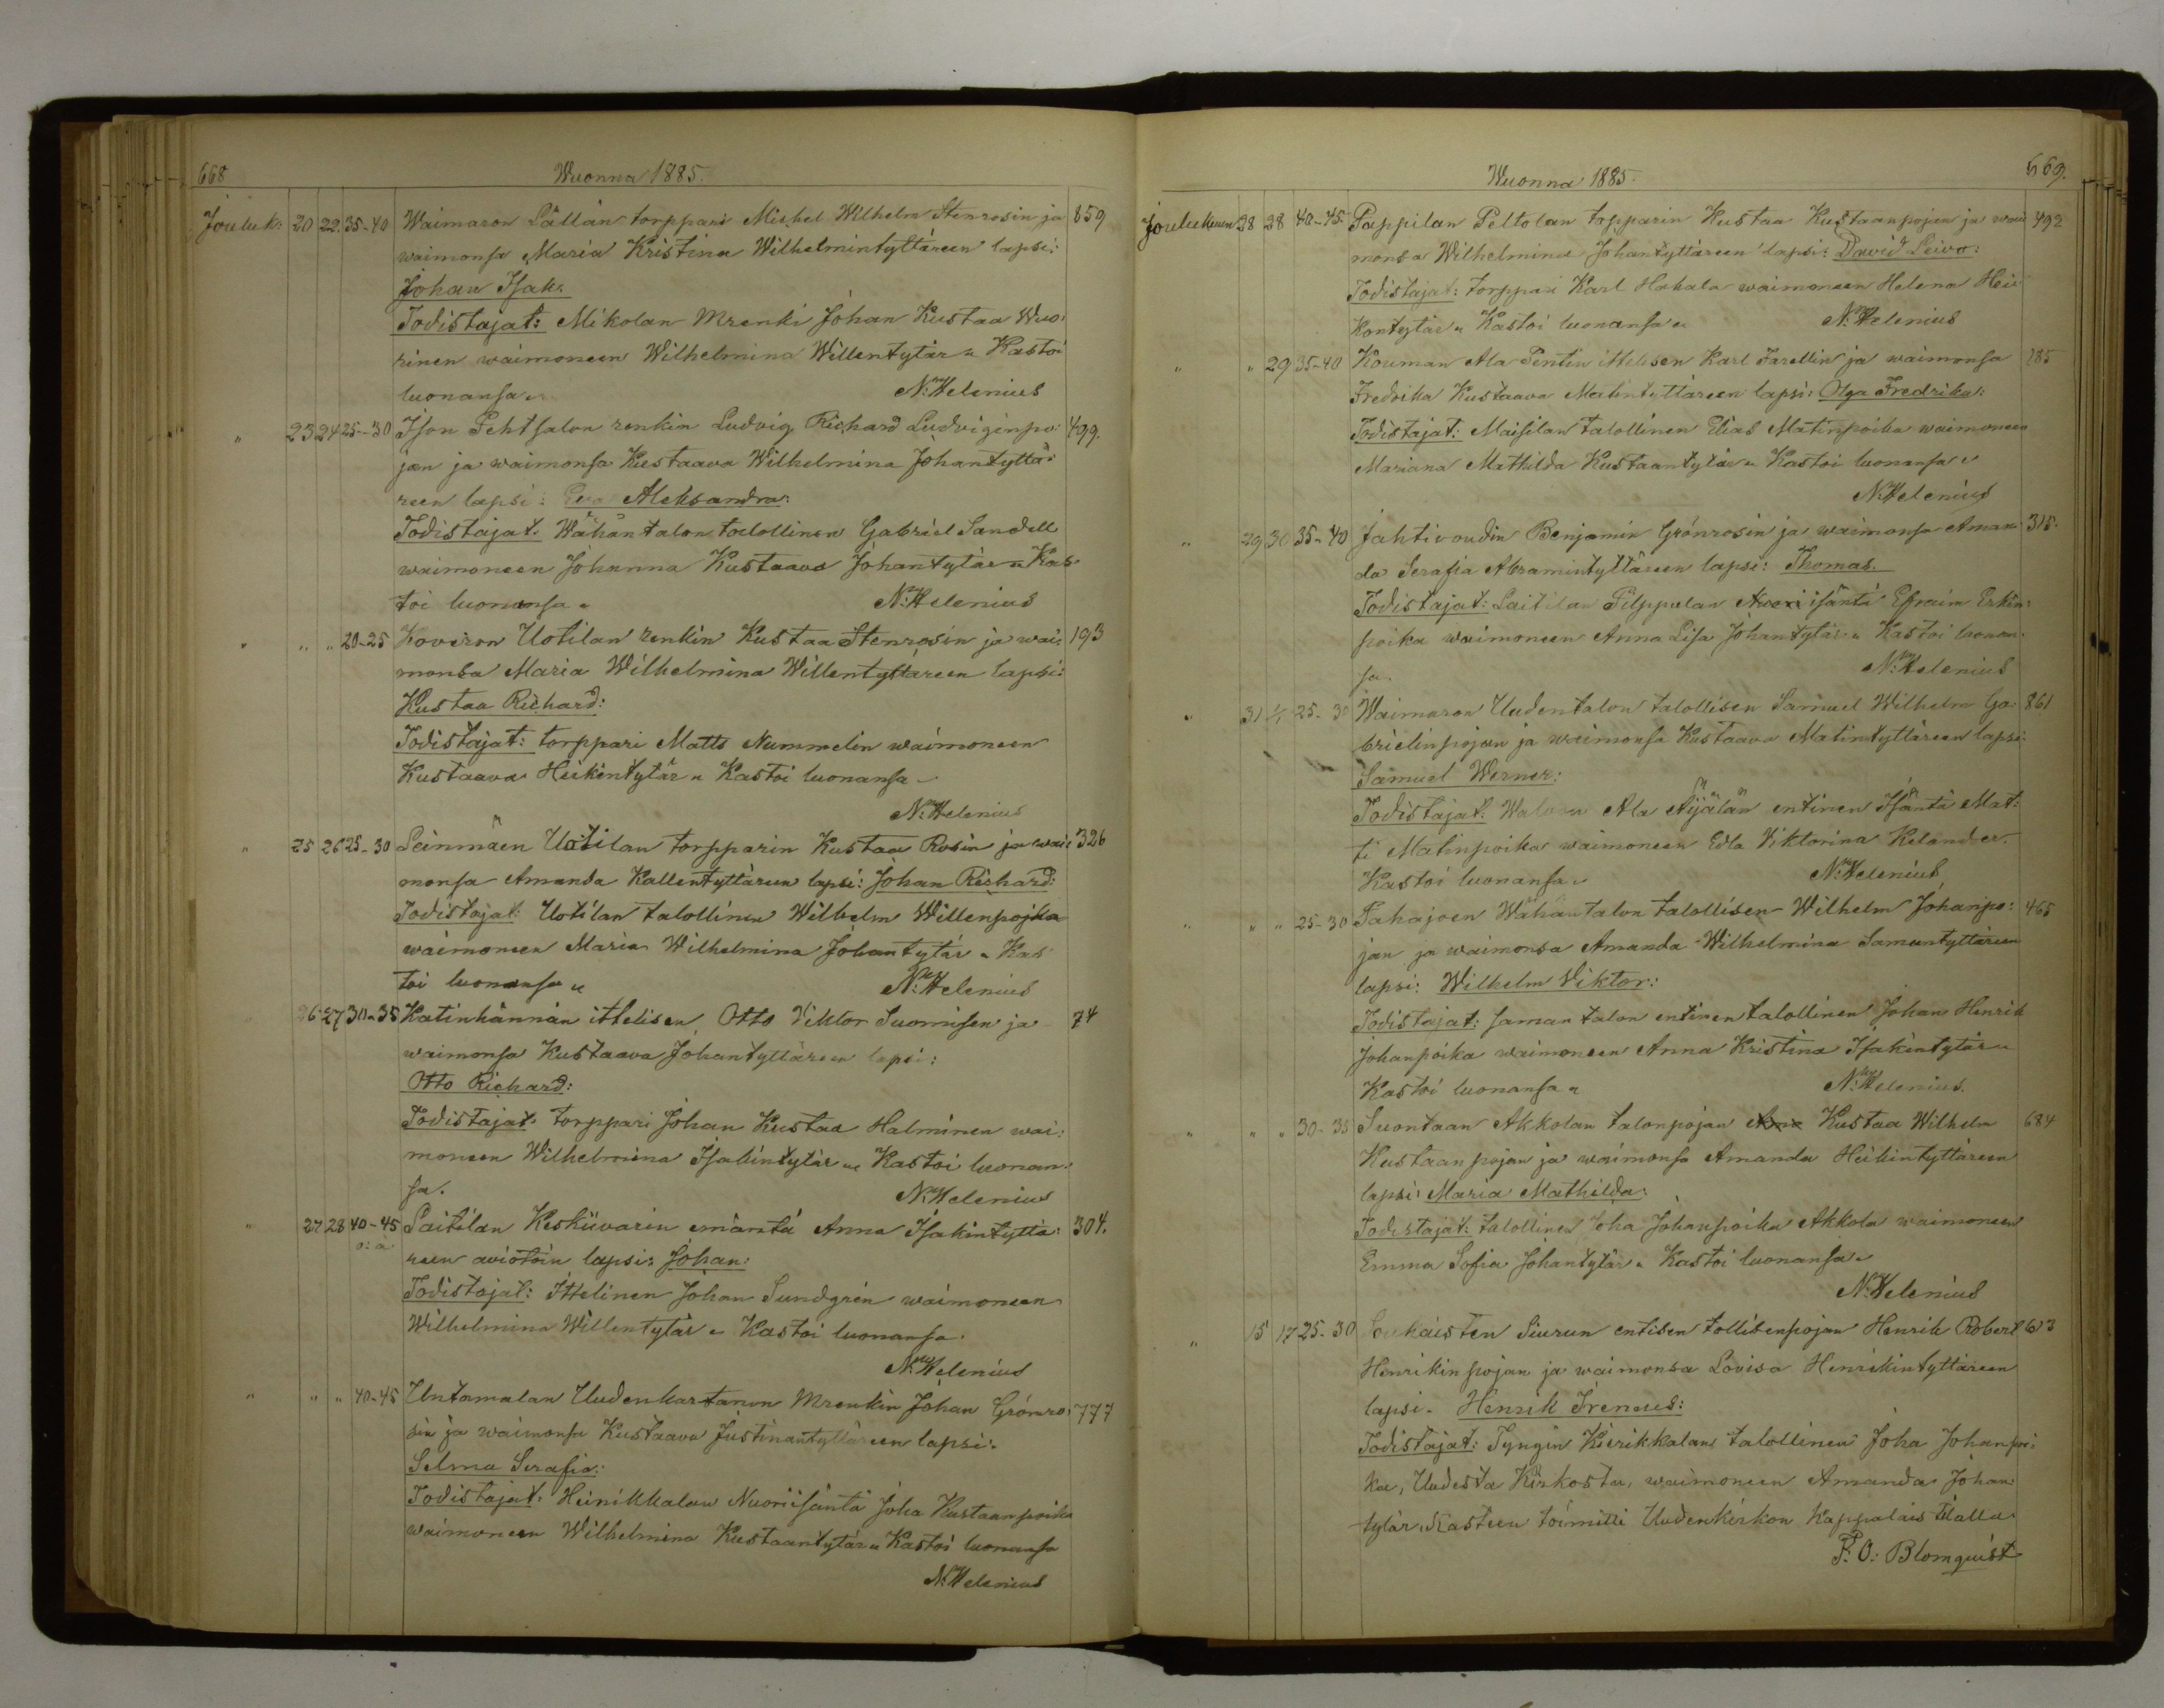 668 Wuonna 1885.
Jouluk: 20 22. 35-40 Waimaron Lällän torppari Mishel Wilhelm Stenrosin ja 859
waimonsa Maria Kristina Wilhelmintyttäreen lapsi:
Johan Isak.
Todistajat: Mikolan Mrenki Johan Kustaa Wuo:
rinen waimoneen Wilhelmina Willentytär " Kastoi
luonansa " N: Helenius
" 23 24 25-30 Ison Pehtsalon renkin Ludvig Richard Ludviginpo: 499.
jan ja waimonsa Kustaava Wilhelmina Johantyttä:
reen lapsi: Eva Aleksandra:
Todistajat. Wähän talon talollinen Gabriel Sandell
waimoneen Johanna Kustaava Johantytär " Kas-
toi luonansa " N: Helenius
" " " 20-25 Koveron Uotilan renkin Kustaa Stenrosin ja wai: 193
monsa Maria Wilhelmina Willentyttäreen lapsi:
Kustaa Richard:
Todistajat: torppari Matts Nummelin waimoneen
Kustaava Heikintytär " Kastoi luonansa "
N: Helenius
" 25 26 25-30 Leinmäen Uotilan torpparin Kustaa Rosin ja wai: 326
monsa Amanda Kallentyttäreen lapsi: Johan Richard:
Todistajat: Uotilan talollinen Wilhelm Willenpojka
waimoneen Maria Wilhelmina Johantytär " Kas
toi luonansa " N: Helenius
26 27 30-35 Katinhännän ittelisen Otto Viktor Suomisen ja 74
waimonsa Kustaava Johantyttäreen lapsi:
Otto Richard:
Todistajat: torppari Johan Kustaa Halminen wai:
moneen Wilhelmina Isakintytär " Kastoi luonan:
sa. N: Helenius
" 27 28 40-45 Laitilan Keskiivarin emäntä Anna Isakintyttä: 304.
o: ä
reen aviotoin lapsi: Johan:
Todistajat: Ittelinen Johan Sundgren waimoneen
Wilhelmina Willentytär " Kastoi luonansa.
N: Helenius
" " " 40-45 Untamalan Uudenkartanon Mrenkin Johan Grönro: 777
sin ja waimonsa Kustaava Justinantyttäreen lapsi:
Selma Serafia:
Todistajat: Heinikkalan Nuoriisäntä Joha Kustaanpoika
waimoneen Wilhelmina Kustaantytär " Kastoi luonansa
N: Helenius
Wuonna 1885. 669.
Joulukuun 28 28 40-45 Pappilan Peltolan torpparin Kustaa Kustaanpojan ja wai 492
monsa Wilhelmina Johantyttäreen lapsi: David Leivo:
Todistajat: torppari Karl Hakala waimoneen Helena Hei
kontytär " Kastoi luonansa " N: Helenius
" " 29 35-40 Kouman Ala Pentin ittelisen Karl Farellin ja waimonsa 185
Fredrika Kustaava Matintyttäreen lapsi: Olga Fredrika:
Todistajat: Maisilan talollinen Elias Matinpoika waimoneen
Mariana Mathilda Kustaantytär " Kastoi luonansa "
N: Helenius
" 29 30 35-40 Jahtivoudin Benjamin Grönrosin ja waimonsa Aman: 315.
da Serafia Abramintyttäreen lapsi: Thomas.
Todistajat: Laitilan Filppulan Nuori isäntä Efraim Erkin:
poika waimoneen Anna Lisa Johantytär " Kastoi luonan:
sa. N: Helenius
" 31 1/1 25-30 Waimaron Uudentalon talollisen Samuel Wilhelm Ga: 861
brielinpojan ja waimonsa Kustaava Matintyttäreen lapsi:
Samuel Werner:
Todistajat: Ala Äijälän entinen Isäntä Mat:
ti Matinpoika waimoneen Edla Viktorina Kelander.
Kastoi luonansa " N: Helenius
" " " 25-30 Pahajoen Wähäntalon talollisen Wilhelm Johanpo: 465
jan ja waimonsa Amanda Wilhelmina Samuntyttäreen
lapsi: Wilhelm Viktor:
Todistajat: saman talon entinen talollinen Johan Henrik
Johanpoika waimoneen Anna Kristina Isakintytär "
Kastoi luonansa " N: Helenius.
" " " 30-35 Suontaan Akkolan talonpojan Kustaa Wilhelm 684
Kustaanpojan ja waimonsa Amanda Heikintyttäreen
lapsi: Maria Mathilda:
Todistajat: talollinen Joha Johanpoika Akkola waimoneen
Emma Sofia Johantytär " Kastoi luonansa "
N: Helenius
" 15 17 25-30 Soukaisten Siurun entisen tollisenpojan Henrik Robert 613
Henrikinpojan ja waimonsa Lovisa Henrikintyttäreen
lapsi. Henrik Ireneus:
Todistajat: Tyngin Kierikkalan talollinen Joha Johanpoi
ka, Uudesta Kirkosta, waimoneen Amanda Johan:
tytär. Kasteen toimitti Uudenkirkon Kappalais tilalla
F. O: Blomquist